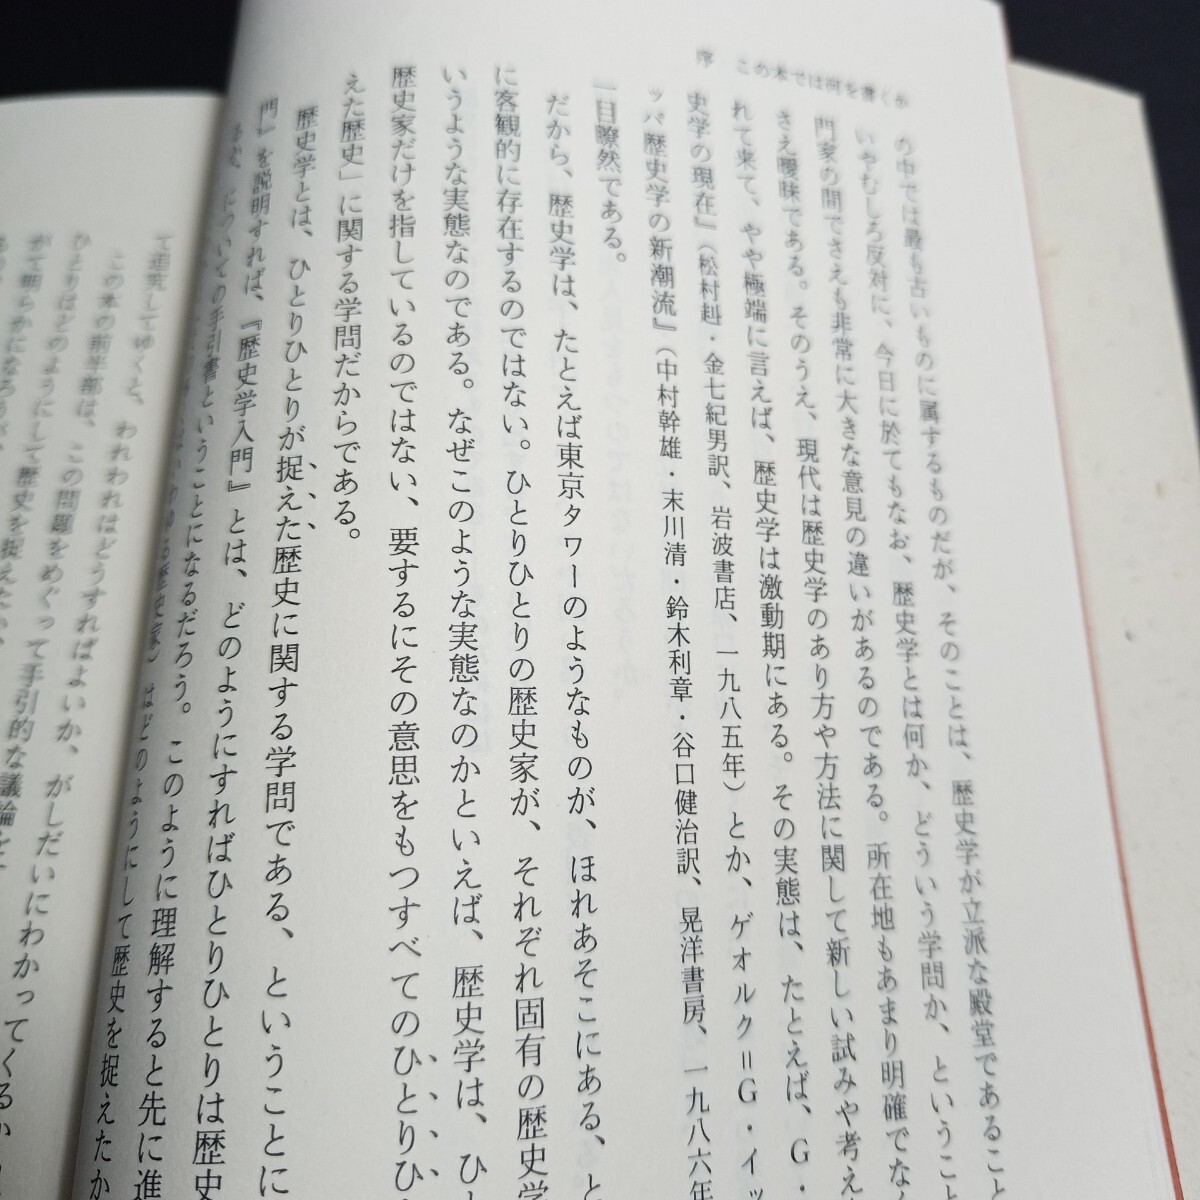 序 この本では何を書くか
の中では最も古いものに属するものだが、そのことは、歴史学が立派な殿堂であること
いやむしろ反対に、今日に於てもなお、歴史学とは何か、どういう学問か、ということ
門家の間でさえも非常に大きな意見の違いがあるのである。所在地もあまり明確でな
さえ曖昧である。そのうえ、現代は歴史学のあり方や方法に関して新しい試みや考え
れて来て、やや極端に言えば、歴史学は激動期にある。その実態は、たとえば、G・
史学の現在』(松村赳・金七紀男訳、岩波書店、一九八五年)とか、ゲオルク=G・イッ
ッパ歴史学の新潮流』(中村幹雄・末川清・鈴木利章・谷口健治訳、晃洋書房、一九八六年
一目瞭然である。
だから、歴史学は、たとえば東京タワーのようなものが、ほれあそこにある、と
に客観的に存在するのではない。ひとりひとりの歴史家が、それぞれ固有の歴史学
いうような実態なのである。なぜこのような実態なのかといえば、歴史学は、ひ
歴史家だけを指しているのではない、要するにその意思をもつすべてのひとりひ
えた歴史」に関する学問だからである。
歴史学とは、ひとりひとりが捉えた歴史に関する学問である、ということに
門』を説明すれば、『歴史学入門』とは、どのようにすればひとりひとりは歴史
についての手引書ということになるだろう。このように理解すると先に進
はどのようにして歴史を捉えたか
て追究してゆくと、われわれはどうすればよいか、がしだいにわかってくるか
この本の前半部は、この問題をめぐって手引的な議論を
ひとりはどのようにして歴史を捉えたか、
がて明らかになろうが、